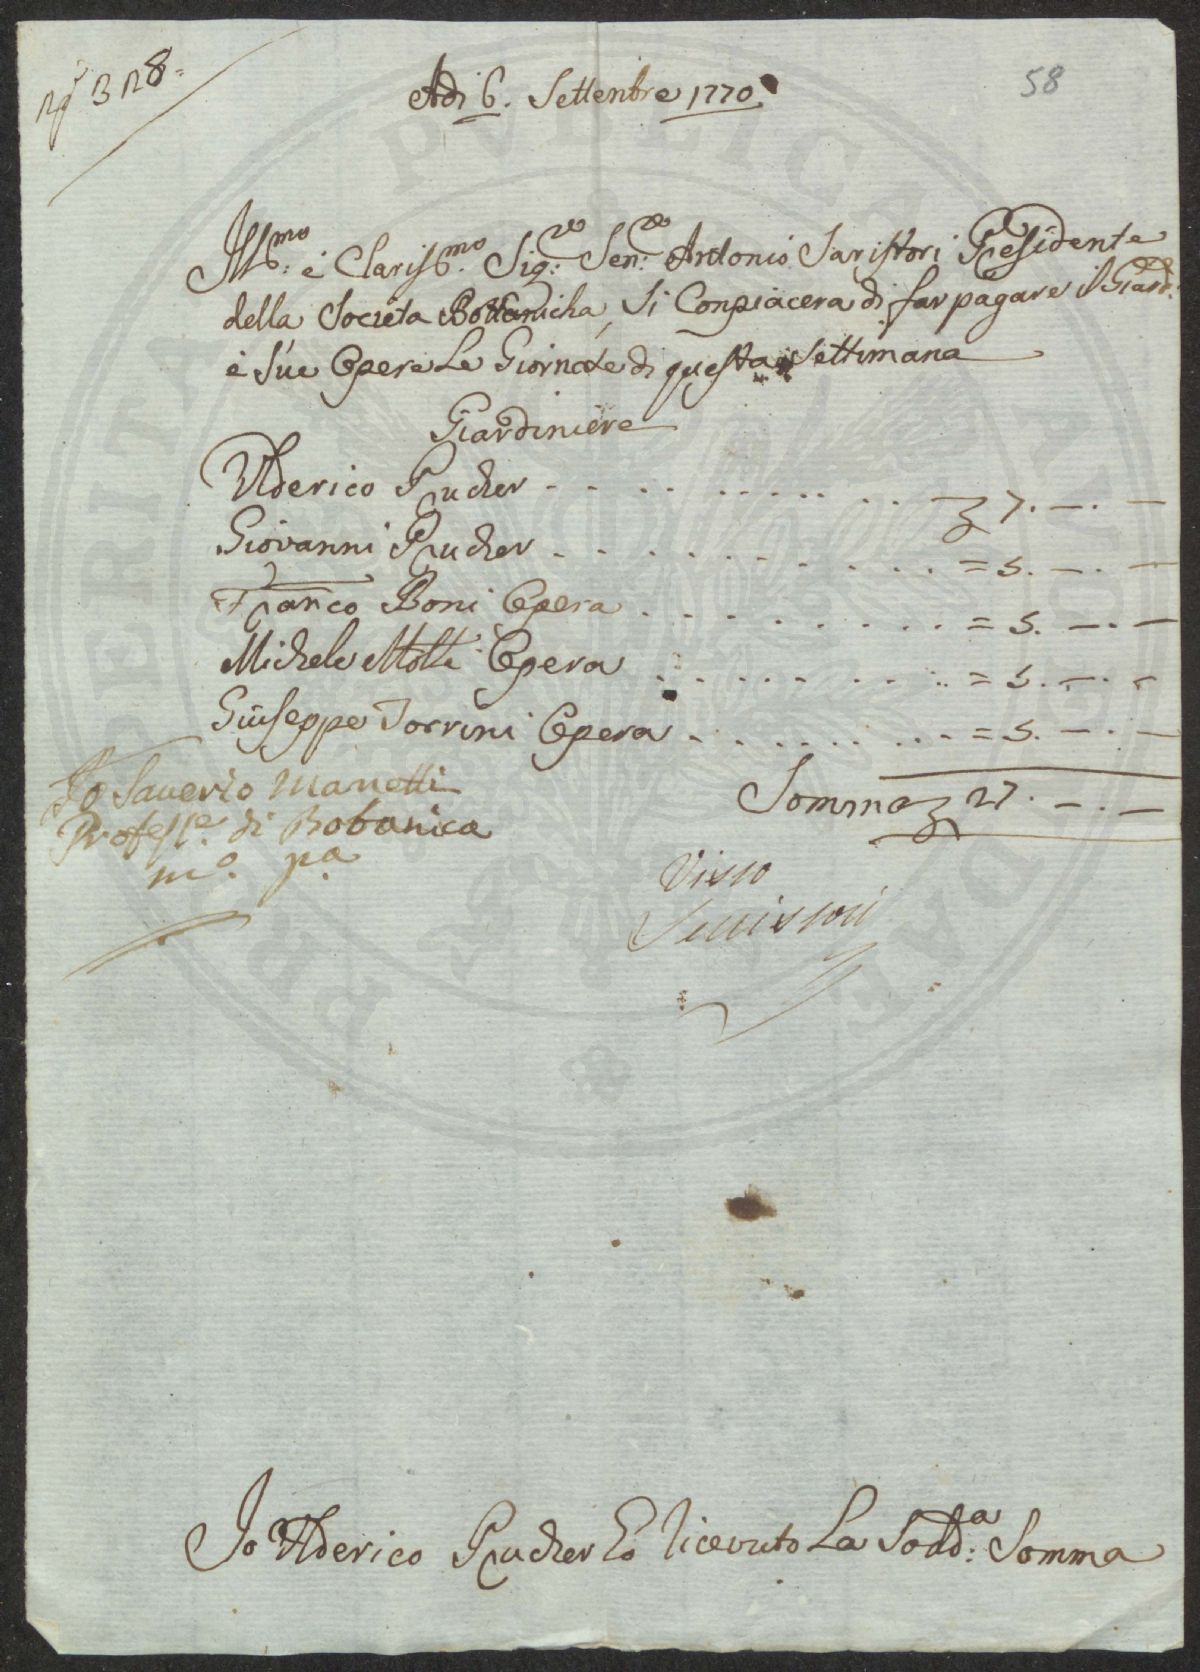 N.º 328
58
Adi 6. Settenbre 1770
Ill.mo e Claris.mo Sig.re Sen.re Antonio Saristori Presidente
della Societa Bottanicha, Si Conpiacera di far pagare il Giard.
e Sue Opere Le Giornate di questa Settimana
Giardiniere
Ulderico Prucher 7. —. —
Giovanni Prucher = 5. —. —
Franco Boni Opera = 5. —. —
Michele Motti Opera = 5. —. —
Giuseppe Torrini Opera = 5. —. —
Somma 27. —. —
Io Saverio Manetti
Profess.e di Botanica
m.o p.a
Visto
Serristori
Io Ulderico Prucher Ho Ricevuto La Sodd.a Somma
PVBLICAE
PROSPERITATI